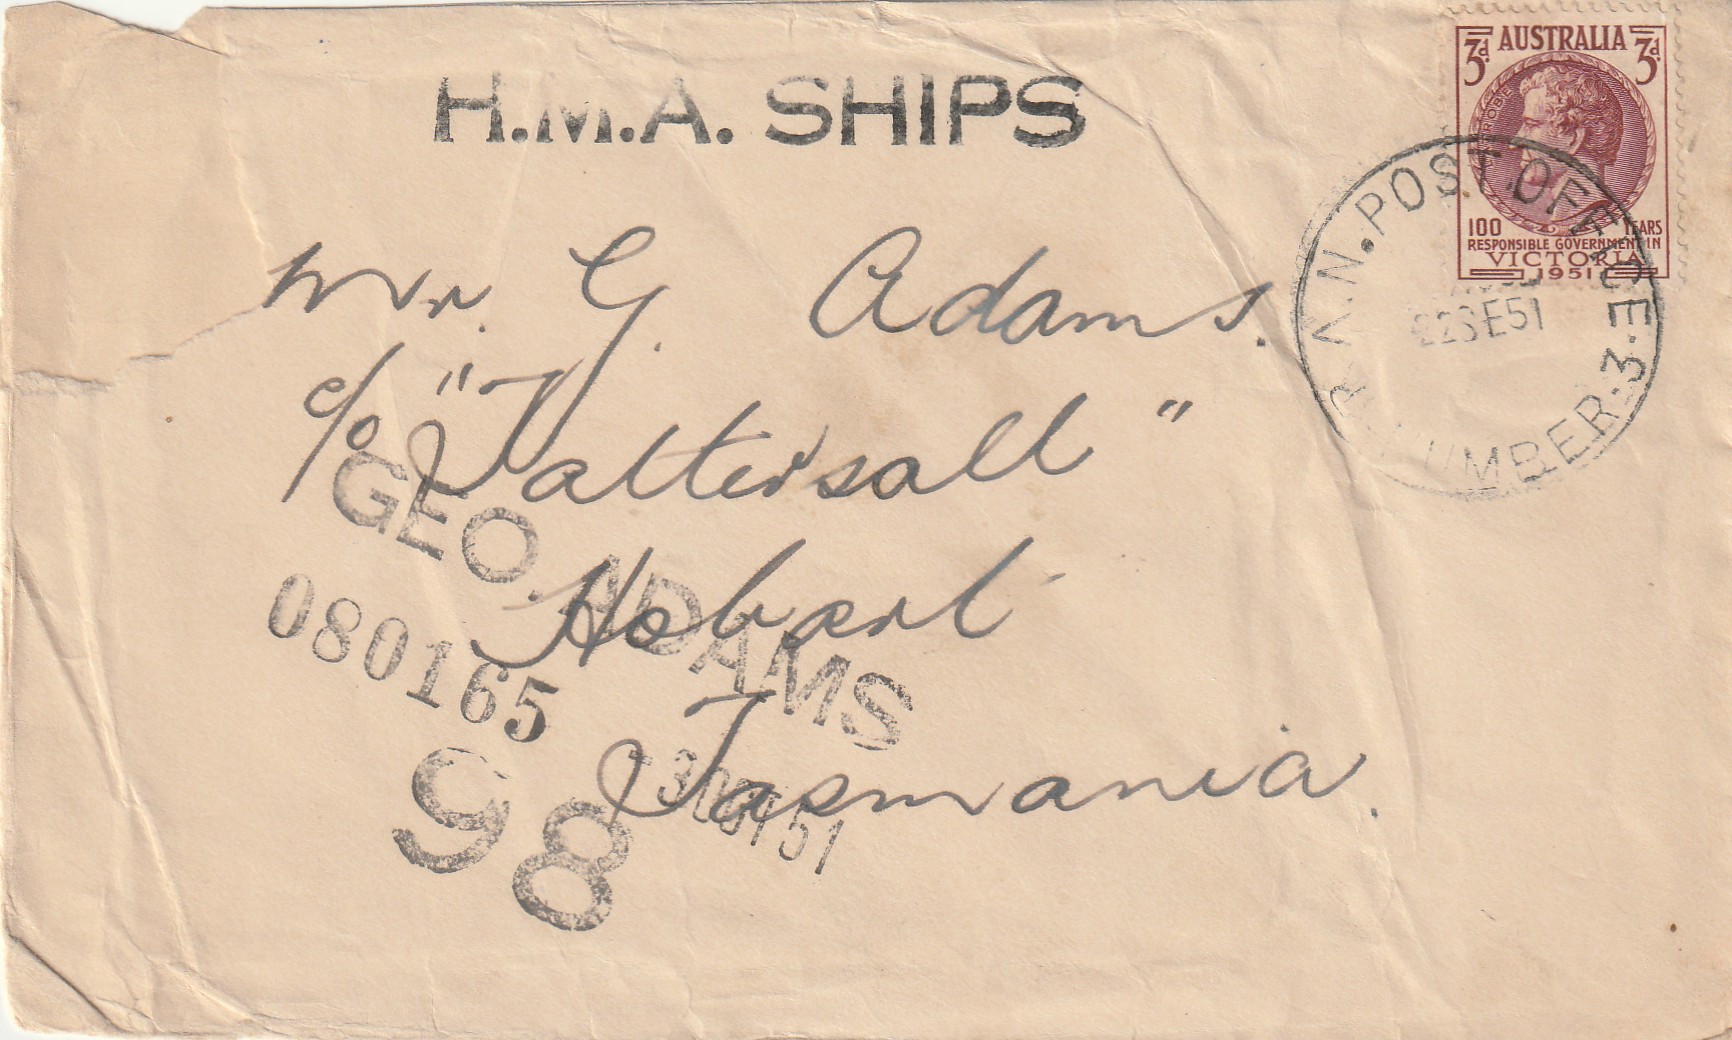 H.M.A. SHIPS
3d AUSTRALIA 3d
100 YEARS
RESPONSIBLE GOVERNMENT IN
VICTORIA
1951
R.A.N. POST OFFICE
22SE51
NUMBER 3
Mr. G. Adams.
c/o "Tattersall"
Hobart
Tasmania.
GEO. ADAMS
080165
98